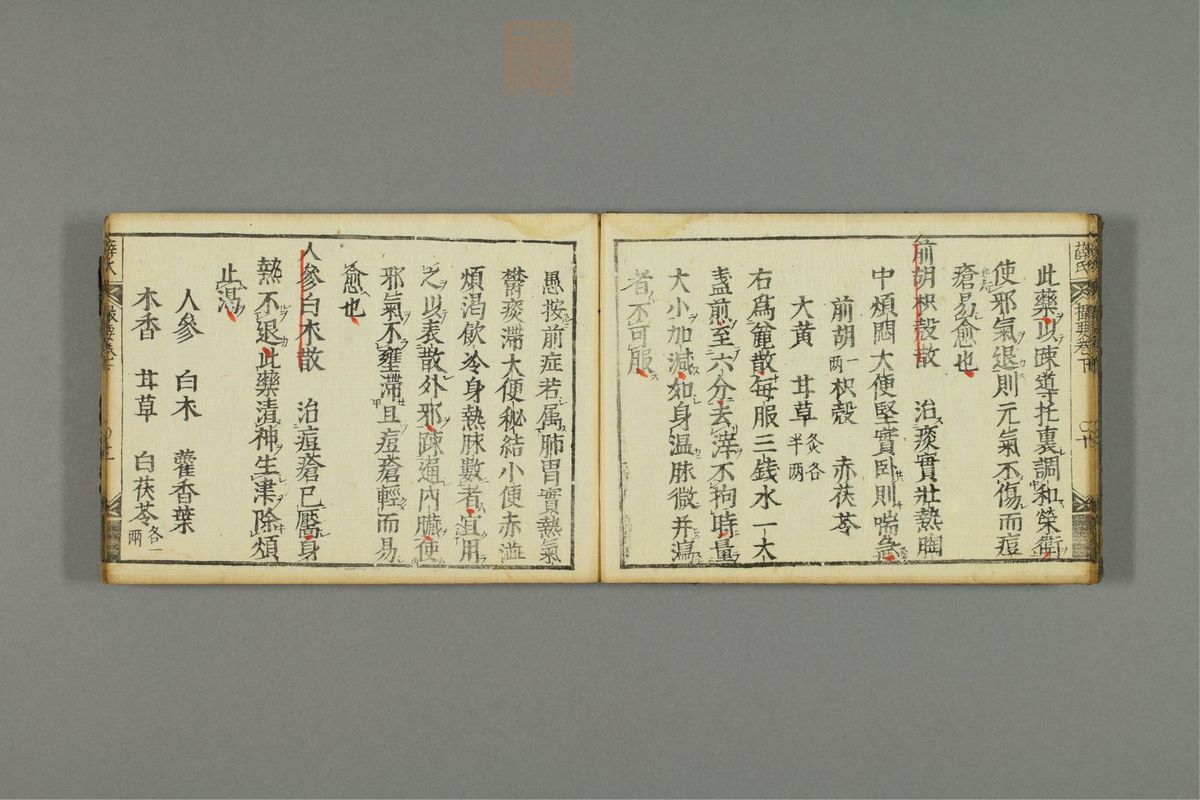 此藥以疎導托裏調和榮衛
使邪氣退則元氣不傷而痘
瘡易愈也
前胡枳殼散　治痰實壯熱胸
中煩悶大便堅實卧則喘急
前胡一兩　枳殼　赤茯苓
大黃　甘草炙各半兩
右為䉺散每服三錢水一大
盞煎至六分去滓不拘時量
大小加減如身温脉微并瀉
者不可服
愚按前症若属肺胃實熱氣
欝痰滞大便秘結小便赤澁
煩渴飲冷身熱脉數者宜用
之以表散外邪疎通内臓使
邪氣不壅滞且痘瘡輕而易
愈也
人參白朮散　治痘瘡已靨身
熱不退此藥清神生津除煩
止渴
人參　白朮　藿香葉
木香　甘草　白茯苓各一兩